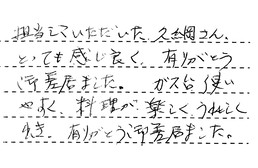 担当していただいた 久綱さん、
とっても感じ良く、有りがとう
御座居ました。 ガス台使い
やすく、料理が楽しくうれしく
有りがとう御座居ました。